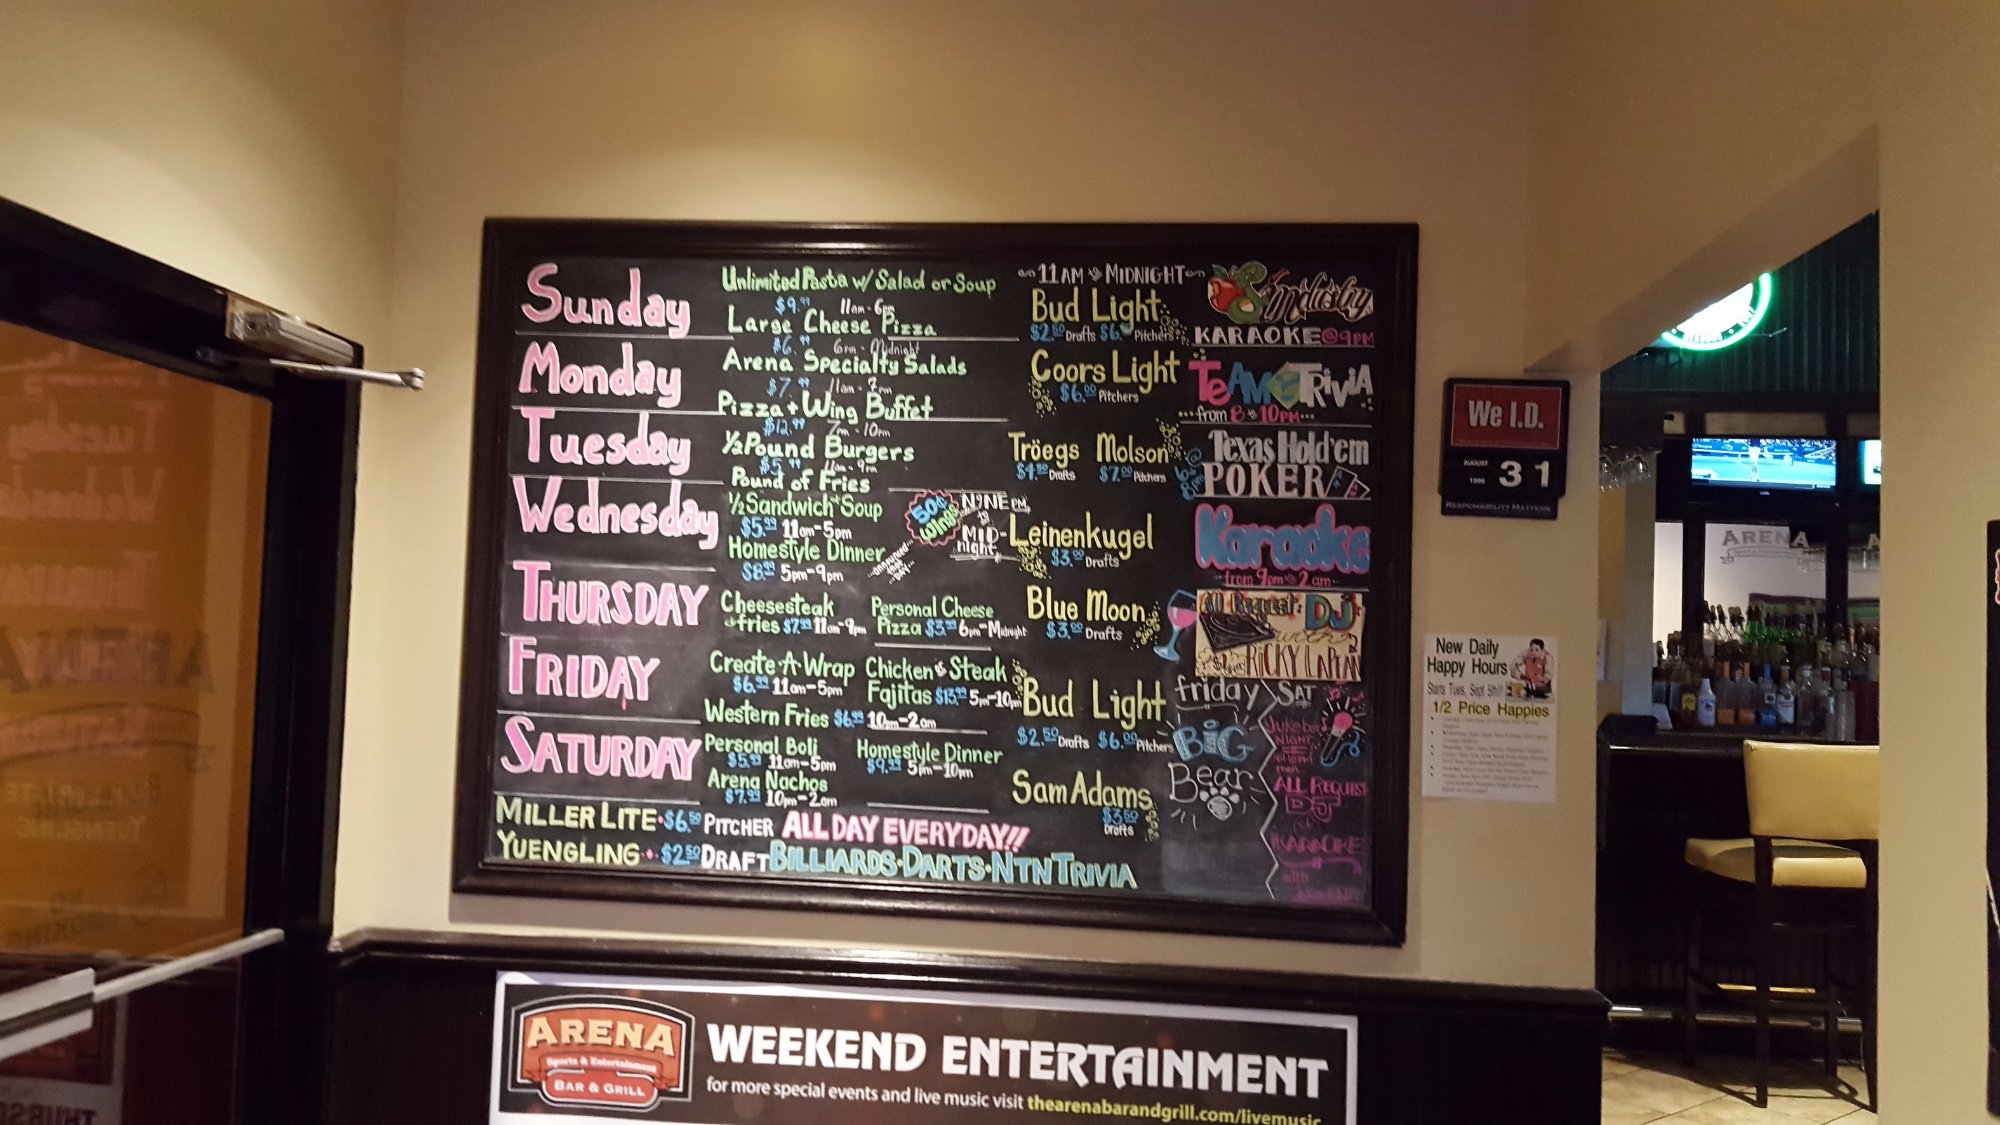 Sunday
Unlimited Pasta w/ Salad or Soup
$9.99 11am-6pm
Large Cheese Pizza
$6.99 6pm-Midnight
11AM to MIDNIGHT
Bud Light
$2.50 Drafts $6.00 Pitchers
S Industry
KARAOKE @ 9PM
Monday
Arena Specialty Salads
$7.99 11am-7pm
Pizza + Wing Buffet
$12.99 7pm-10pm
Coors Light
$6.00 Pitchers
TEAM TRIVIA
from 8 to 10PM
Tuesday
½ Pound Burgers
$5.99 11am-9pm
Pound of Fries
Tröegs Molson
$4.50 Drafts $7.00 Pitchers
Texas Hold'em
POKER
Wednesday
½ Sandwich + Soup
$5.99 11am-5pm
Homestyle Dinner
$8.99 5pm-9pm
50¢
Wings
NINE PM
to
MID-
night
announced
that
DAY
Leinenkugel
$3.00 Drafts
Karaoke
from 9pm to 2am
THURSDAY
Cheesesteak
+ fries $7.99 11am-9pm
Personal Cheese
Pizza $3.99 6pm-Midnight
Blue Moon
$3.00 Drafts
All Request DJ
with
RICKY LAPEAN
FRIDAY
Create-A-Wrap
$6.99 11am-5pm
Chicken & Steak
Fajitas $13.99 5pm-10pm
Western Fries $6.99 10pm-2am
Bud Light
$2.50 Drafts $6.00 Pitchers
friday
BIG
Bear
SAT
Jukebox
NIGHT
then
ALL REQUEST
DJ
KARAOKE
with
SATURDAY
Personal Boli
$5.99 11am-5pm
Homestyle Dinner
$9.99 5pm-10pm
Arena Nachos
$7.99 10pm-2am
Sam Adams
$3.50
Drafts
MILLER LITE $6.50 PITCHER ALL DAY EVERYDAY!!
YUENGLING $2.50 DRAFT BILLIARDS • DARTS • NTN TRIVIA
We I.D.
AUGUST
1996
31
RESPONSIBILITY MATTERS
New Daily
Happy Hours
Starts Tues, Sept 5th!!
1/2 Price Happies
ARENA
ARENA
Sports & Entertainment
BAR & GRILL
WEEKEND ENTERTAINMENT
for more special events and live music visit thearenabarandgrill.com/livemusic